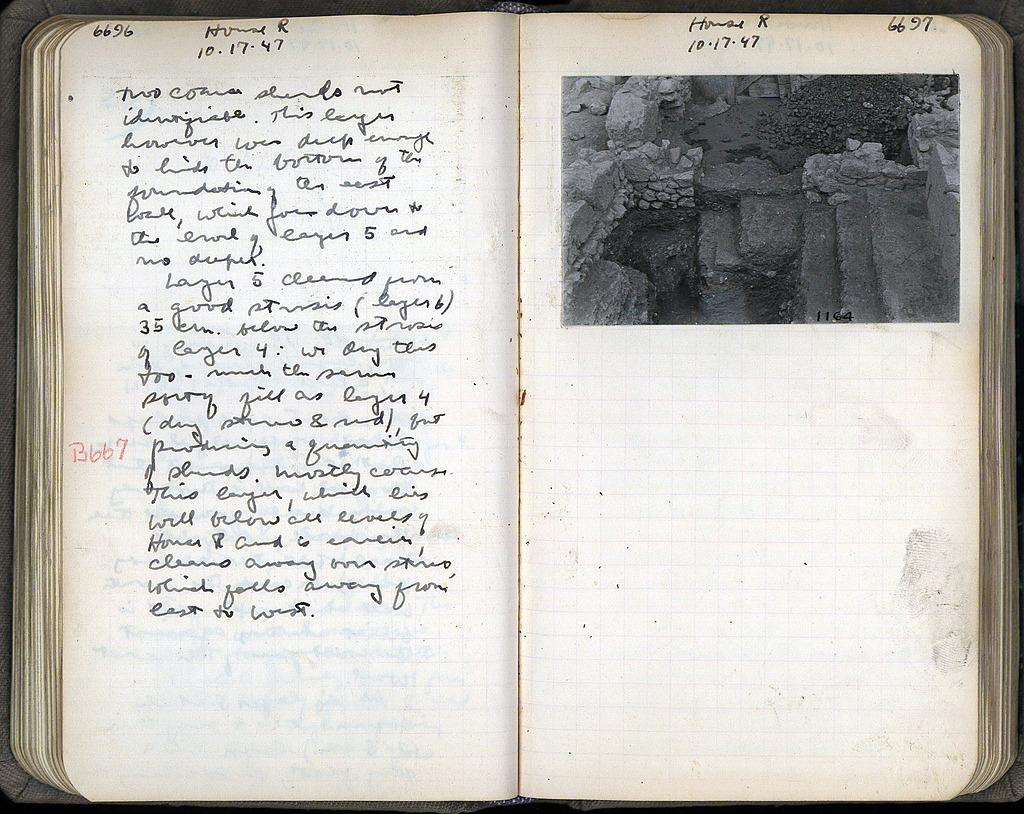 6696
House R
10.17.47
two coarse sherds not
identifiable. This layer
however was deep enough
to hide the bottom of the
foundation of the east
wall, which goes down to
the level of layer 5 and
no deeper.
Layer 5 cleaned from
a good strosis (layer 6)
35 cm. below the strosis
of layer 4: we dig this
too - much the same
sort of fill as layer 4
(dug stereo & red), but
B667
producing a quantity
of sherds, mostly coarse.
This layer, which lies
well below all levels of
House R and is earlier,
cleans away over stereo
which falls away from
east to west.
House R
10.17.47
6697
1164